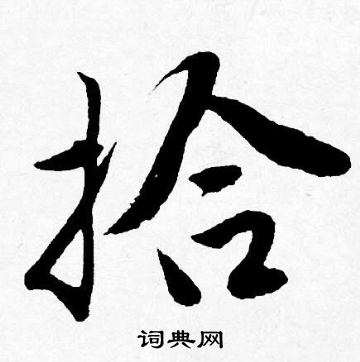 拾
词典网